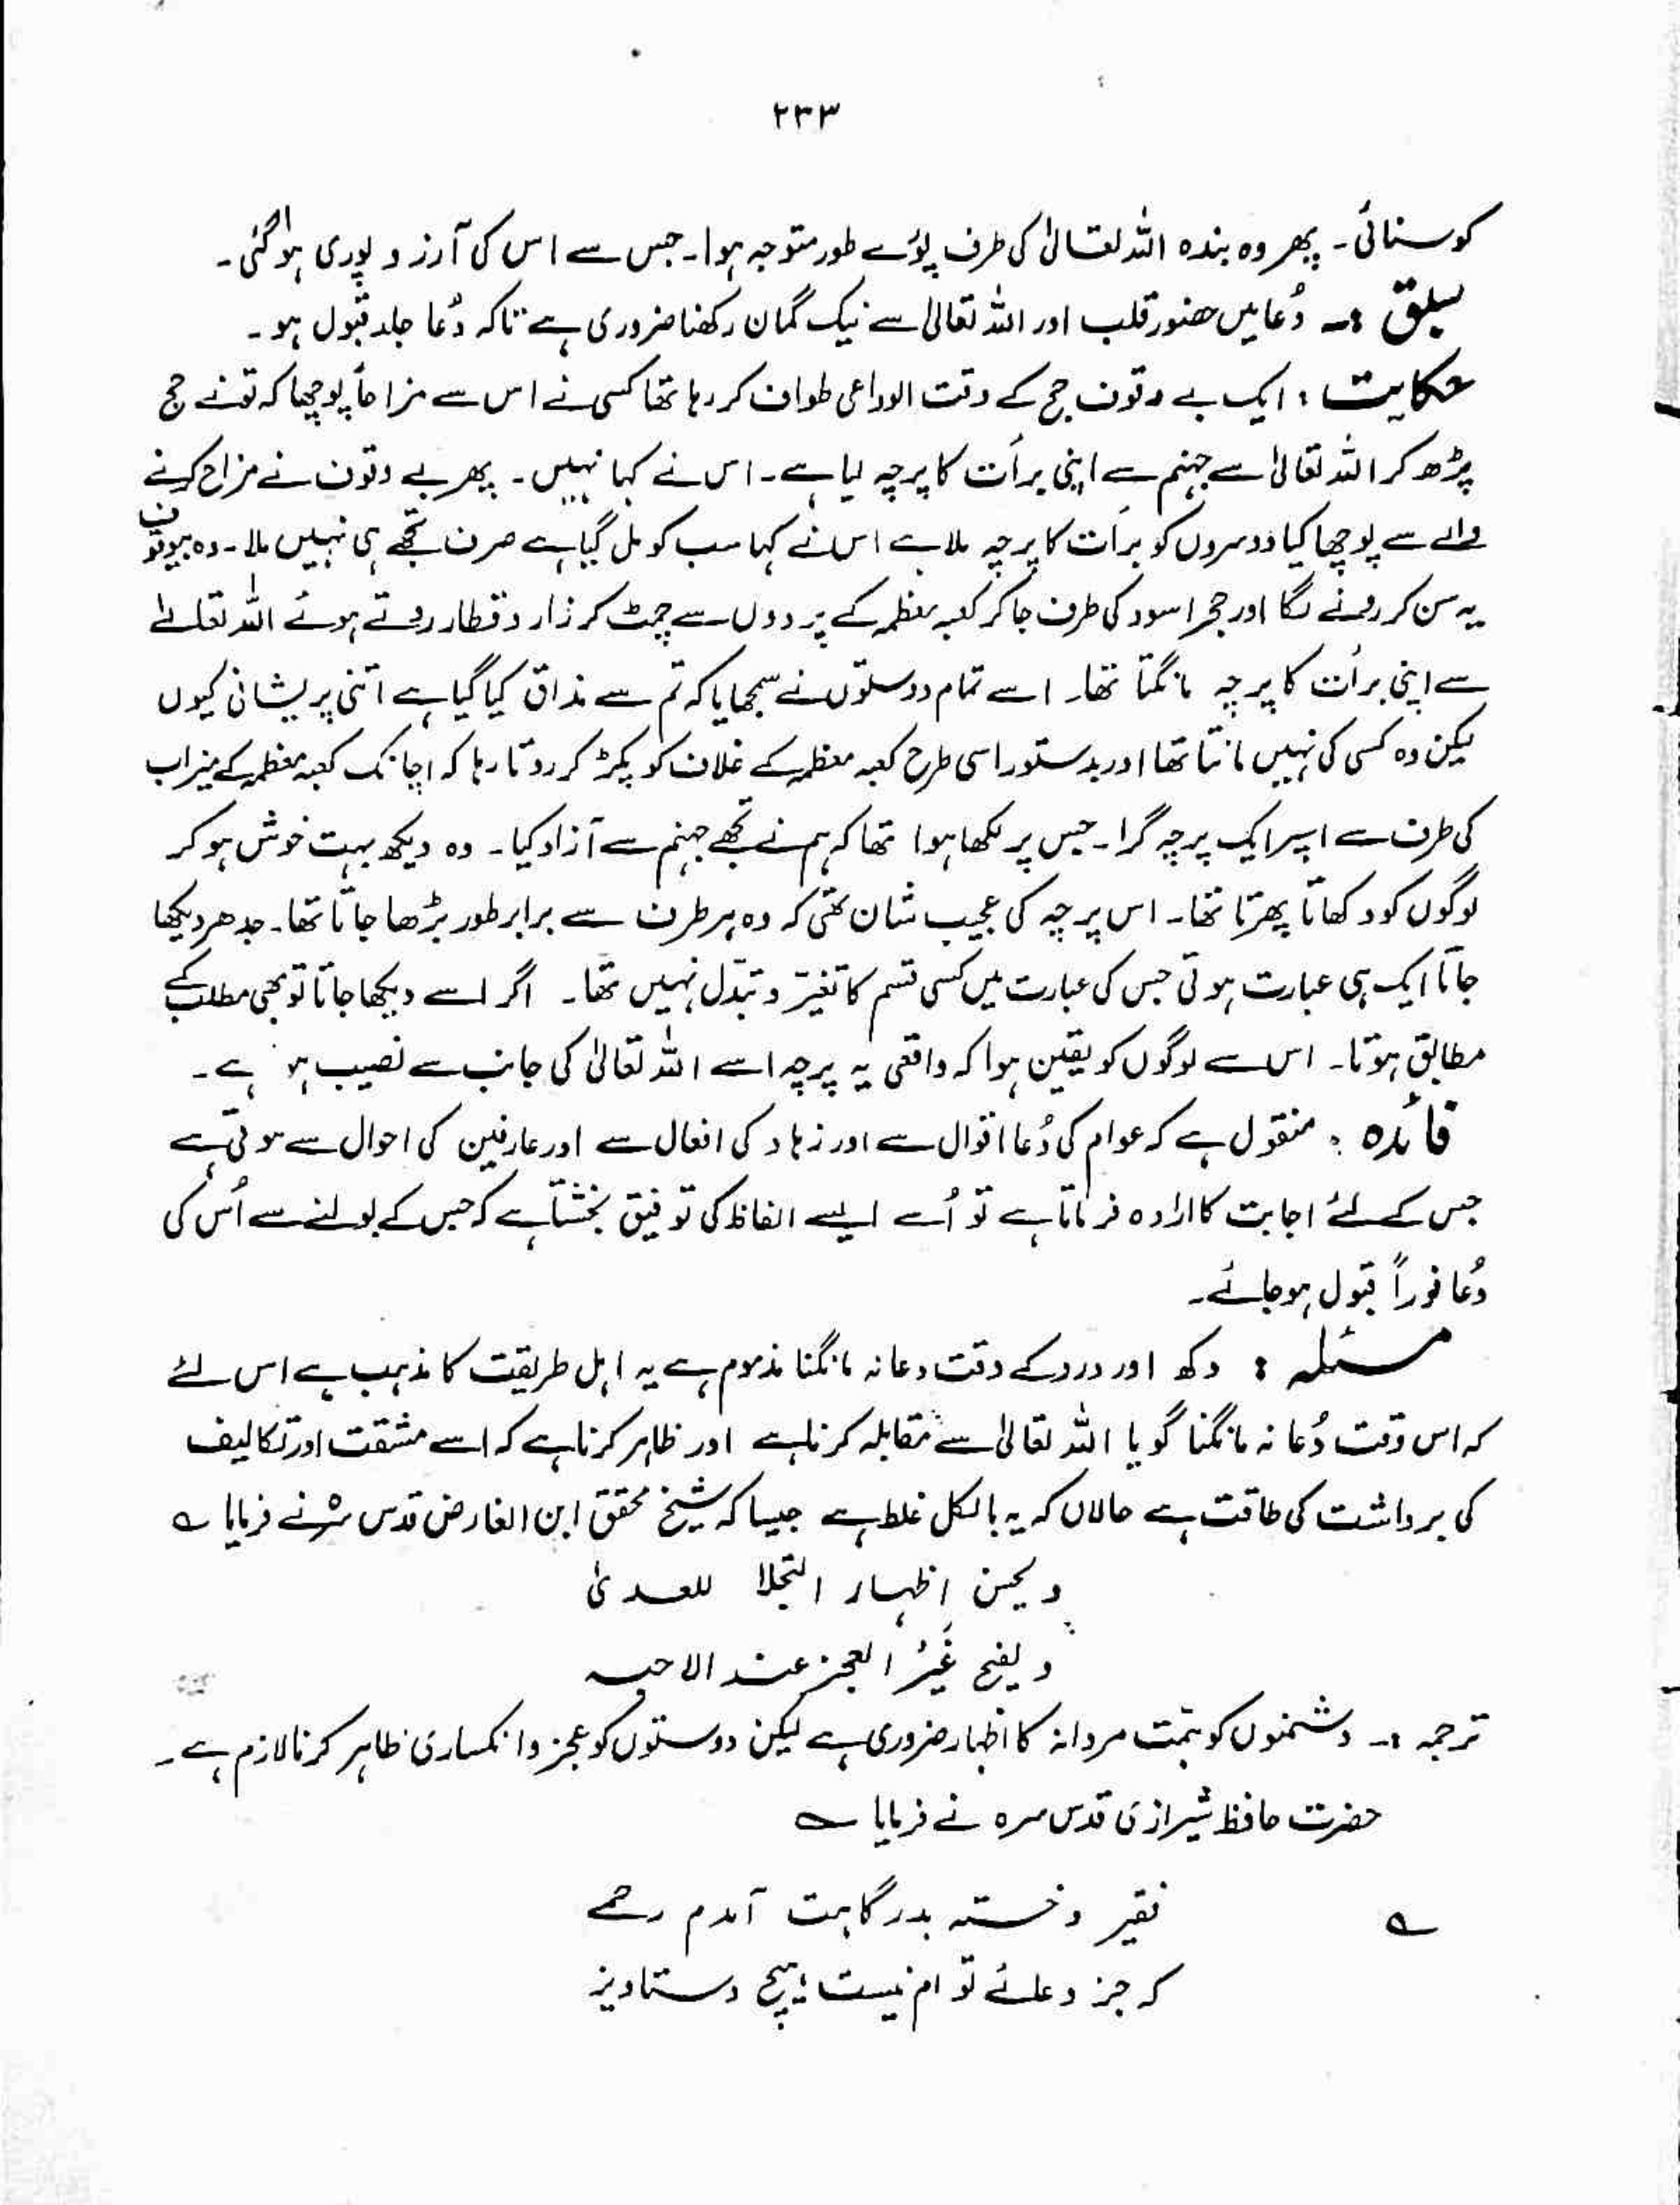 ۲۳۳
کو سنائی۔ پھر وہ بندہ اللہ تعالیٰ کی طرف پوُرے طور متوجہ ہوا۔ جس سے اس کی آرزو پوری ہو گئی۔
سبق :۔ دُعا میں حضور قلب اور اللہ تعالیٰ سے نیک گمان رکھنا ضروری ہے تاکہ دُعا جلد قبول ہو۔
حکایت : ایک بے وقوف حج کے وقت الوداعی طواف کر رہا تھا کسی نے اس سے مزاحاً پوچھا کہ تونے حج
پڑھ کر اللہ تعالیٰ سے جہنم سے اپنی برأت کا پرچہ لیا ہے۔ اس نے کہا نہیں۔ پھر بے وقوف نے مزاح کرنے
والے سے پوچھا کیا دوسروں کو برأت کا پرچہ ملا ہے اس نے کہا سب کو مل گیا ہے صرف تجھے ہی نہیں ملا۔ وہ بیوقوف
یہ سن کر رونے لگا اور حجر اسود کی طرف جا کر کعبہ معظمہ کے پردوں سے چمٹ کر زار و قطار روتے ہوئے اللہ تعالےٰ
سے اپنی برأت کا پرچہ مانگتا تھا۔ اسے تمام دوستوں نے سمجھایا کہ تم سے مذاق کیا گیا ہے اتنی پریشانی کیوں
لیکن وہ کسی کی نہیں مانتا تھا اور بدستور اسی طرح کعبہ معظمہ کے غلاف کو پکڑ کر روتا رہا کہ اچانک کعبہ معظمہ کے میزاب
کی طرف سے اسپر ایک پرچہ گرا۔ جس پر لکھا ہوا تھا کہ ہم نے تجھے جہنم سے آزاد کیا۔ وہ دیکھ بہت خوش ہو کر
لوگوں کو دکھاتا پھرتا تھا۔ اس پرچہ کی عجیب شان تھی کہ وہ ہر طرف سے برابر طور پڑھا جاتا تھا۔ جدھر دیکھا
جاتا ایک ہی عبارت ہوتی جس کی عبارت میں کسی قسم کا تغیّر و تبدّل نہیں تھا۔ اگر اسے دیکھا جاتا تو بھی مطلب کے
مطابق ہوتا۔ اس سے لوگوں کو یقین ہوا کہ واقعی یہ پرچہ اسے اللہ تعالیٰ کی جانب سے نصیب ہو ہے۔
فائدہ : منقول ہے کہ عوام کی دُعا اقوال سے اور زہاد کی افعال سے اور عارفین کی احوال سے ہوتی ہے
جس کے لئے اجابت کا ارادہ فرماتا ہے تو اُسے ایسے الفاظ کی توفیق بخشتا ہے کہ جس کے بولنے سے اُس کی
دُعا فوراً قبول ہو جائے۔
مسئلہ : دکھ اور درد کے وقت دعا نہ مانگنا مذموم ہے یہ اہل طریقت کا مذہب ہے اس لئے
کہ اس وقت دُعا نہ مانگنا گویا اللہ تعالیٰ سے مقابلہ کرنا ہے اور ظاہر کرنا ہے کہ اسے مشقت اور تکالیف
کی برداشت کی طاقت ہے حالاں کہ یہ بالکل غلط ہے جیسا کہ شیخ محقق ابن الفارض قدس سرہٗ نے فرمایا ؎
و یحسن اظہار التجلد للعدیٰ
و یقبح غَیرُ العجز عند الاحبہ
ترجمہ :۔ دشمنوں کو ہمّت مردانہ کا اظہار ضروری ہے لیکن دوستوں کو عجز و انکساری ظاہر کرنا لازم ہے۔
حضرت حافظ شیرازی قدس سرہ نے فرمایا ؎
؎ فقیر و خستہ بدرگاہت آمدم رحمے
کہ جز دعائے تو ام نیست ہیچ دستاویز